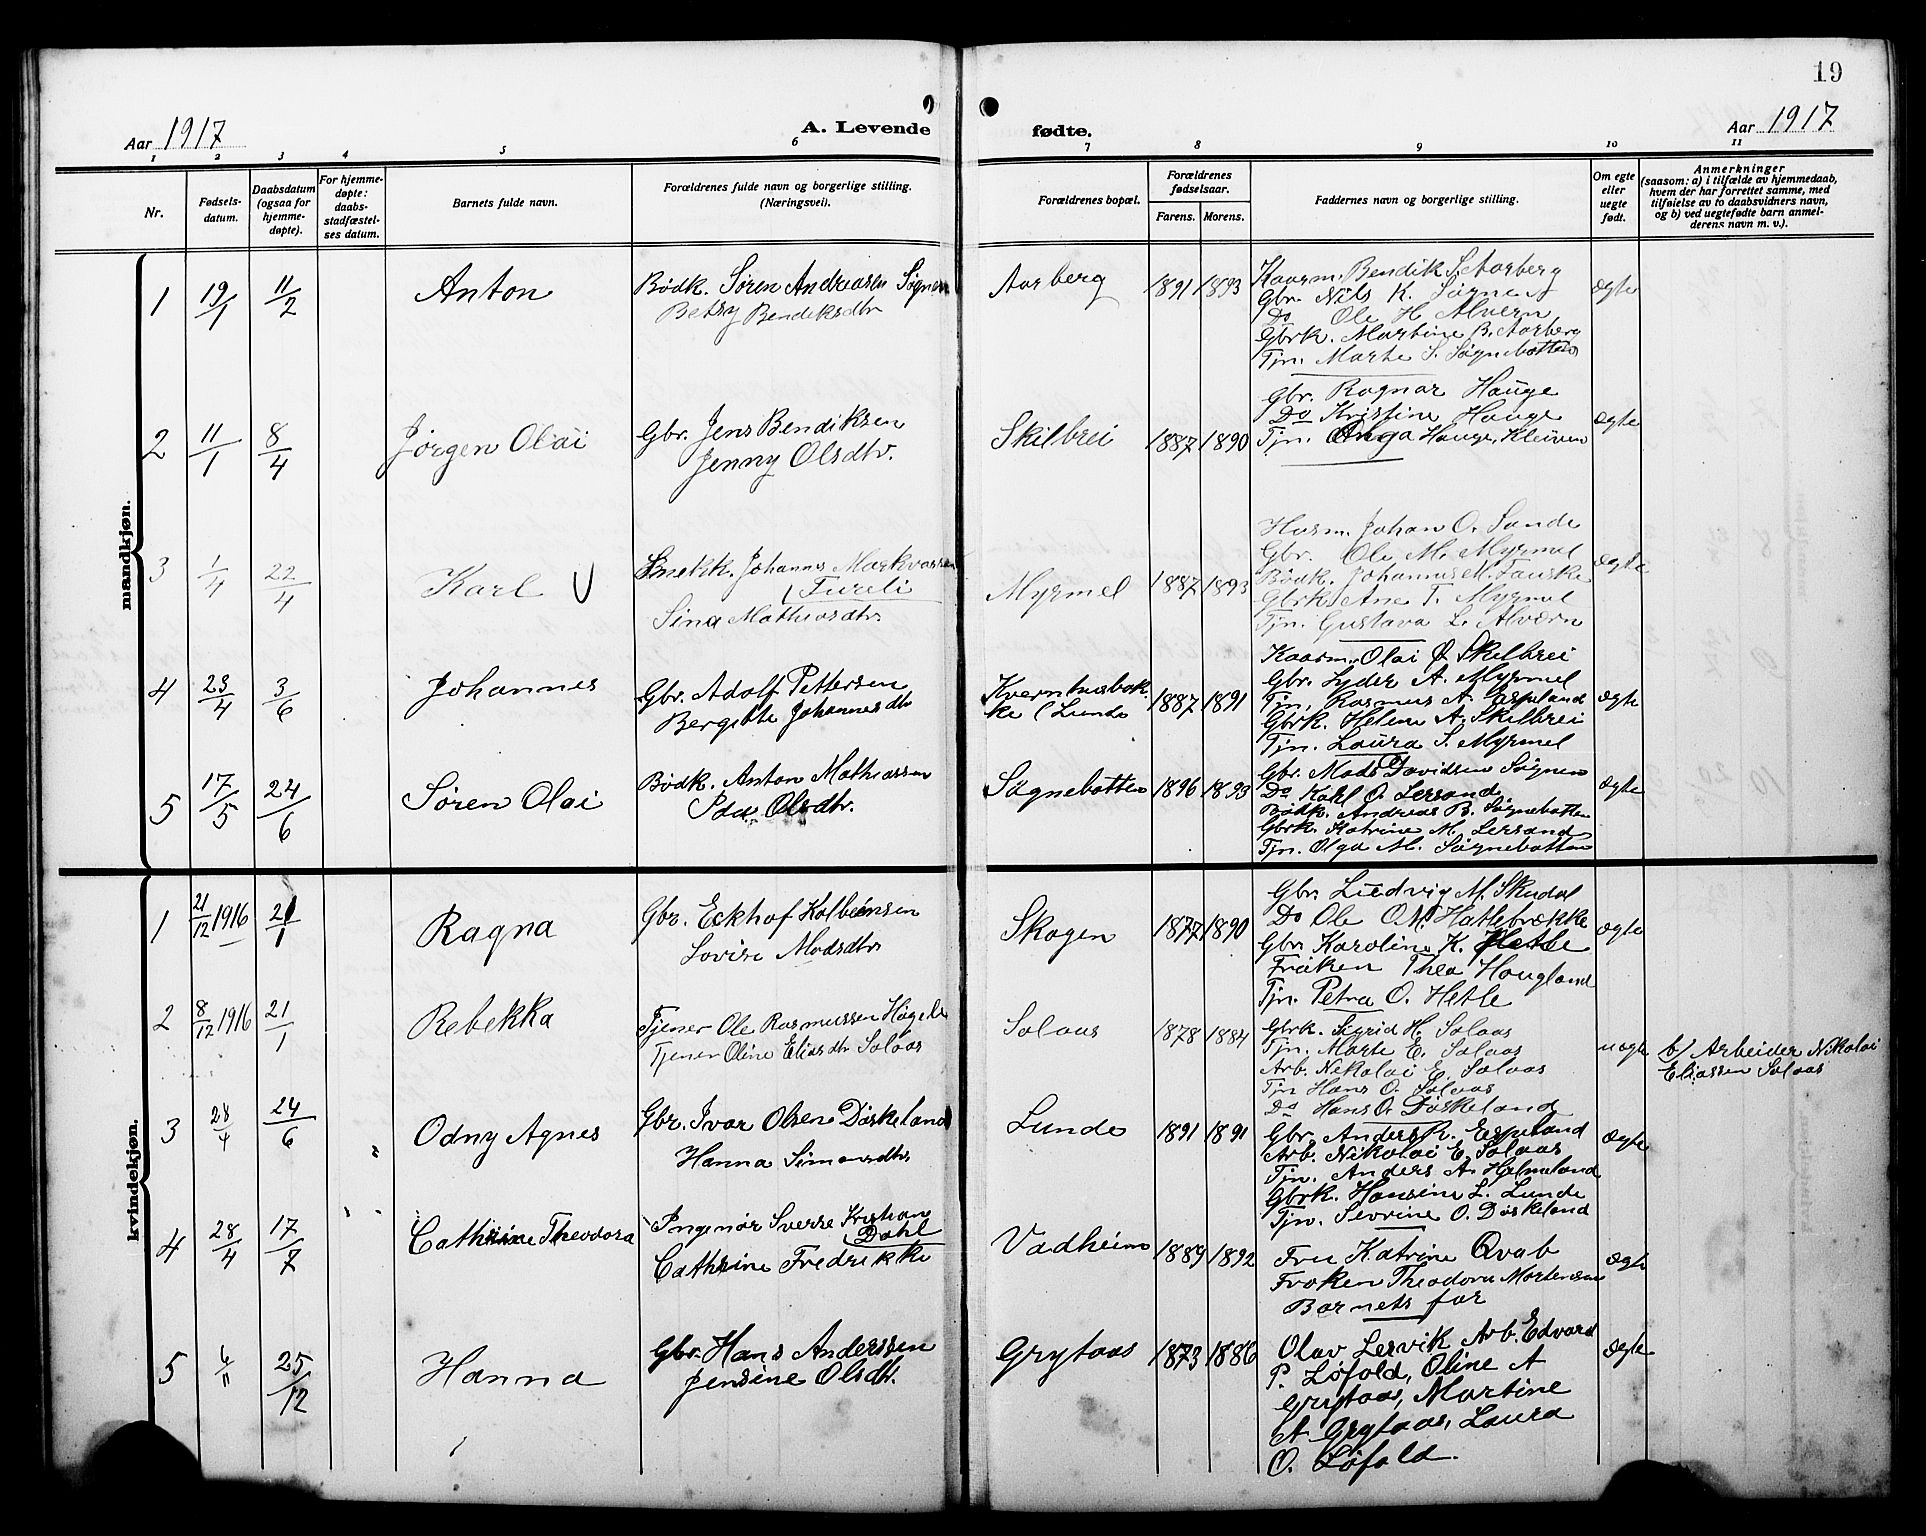 19
Aar 1917
A. Levende
fødte.
Aar 1917
1 2 3 4 5 6 7 8 9 10 11
Nr.
Fødsels-
datum.
Daabsdatum
(ogsaa for
hjemme-
døpte).
For hjemme-
døpte:
daabs-
stadfæstel-
ses datum.
Barnets fulde navn.
Forældrenes fulde navn og borgerlige stilling.
(Næringsvei).
Forældrenes bopæl.
Forældrenes
fødselsaar.
Farens. Morens.
Faddernes navn og borgerlige stilling.
Om egte
eller
uegte
født.
Anmerkninger
(saasom: a) i tilfælde av hjemmedaab,
hvem der har forrettet samme, med
tilføielse av to daabsvidners navn,
og b) ved uegtefødte barn anmel-
derens navn m. v.).
mandkjøn.
1 19/1 11/2 Anton
Bødk. Søren Andreasen Søgnen
Betsy Bendiksdtr
Aarberg 1891 1893
Kaarm. Bendik S. Aarberg
Gbr. Nils K. Søgnen
Do Ole H. Alvern
Gbrk. Martine B. Aarberg
Tjn. Marte S. Søgnebotten
ægte
2 11/1 8/4 Jørgen Olai
Gbr. Jens Bendiksen
Jenny Olsdtr.
Skilbrei 1887 1890
Gbr. Ragnar Hauge
Do Kristine Hauge
Tjn. Anga Hauge, Kleiven
ægte
3 1/4 22/4 Karl
Snekk. Johannes Markvassen
Tureli
Sina Mathiasdtr
Myrmel 1887 1893
Husm. Johan O. Sande
Gbr. Ole M. Myrmel
Bødk. Johannes M. Fauske
Gbrk. Ane T. Myrmel
Tjn. Gustava L. Alvern
ægte
4 23/4 3/6 Johannes
Gbr. Adolf Pettersen
Bergitte Johannesdtr
Kvernhusbak-
ke (Lunde 1887 1891
Kaarm. Olai O. Skilbrei
Gbr. Lyder A. Myrmel
Tjn. Rasmus A. Espeland
Gbrk. Helene A. Skilbrei
Tjn. Laura S. Myrmel
ægte
5 17/5 24/6 Søren Olai
Bødk. Anton Mathiassen
Ida Olsdtr.
Søgnebotten 1896 1893
Gbr. Mads Davidsen Søgnen
Do Karl O. Lersand
Bødk. Andreas B. Søgnebotten
Gbrk. Katrine M. Lersand
Tjn. Olga M. Søgnebotten
ægte
kvindekjøn.
1 21/12 1916 21/1 Ragna
Gbr. Eckhof Kolbeinsen
Lovise Madsdtr
Skogen 1877 1890
Gbr. Ludvig M. Skudal
Do Ole O. M. Hatlebrække
Gbr. Karoline K. Hetle
Frøken Thea Hougland
Tjn. Petra O. Hetle
ægte
2 8/12 1916 21/1 Rebekka
Tjener Ole Rasmussen
Tjener Oline Eliasdtr Solaas
Solaas 1878 1884
Gbrk. Sigrid H. Solaas
Tjn. Marte E. Solaas
Arb. Nikolai E. Solaas
Tjn Hans O. Solaas
Do Hans O. Døskeland
uægte
b/ Arbeider Nikolai
Eliassen Solaas
3 28/4 24/6 Odny Agnes
Gbr. Ivar Olsen Døskeland
Hanna Simonsdtr
Lunde 1891 1891
Gbr. Anders R. Espeland
Arb. Nikolai E. Solaas
Tjn. Anders A. Helmeland
Gbrk. Hansine L. Lunde
Tjn. Sevrine O. Døskeland
ægte
4 28/4 17/7 Cathrine Theodora
Ingeniør Sverre Kristian
Dahl
Cathrine Fredrikke
Vadheim 1889 1892
Fru Katrine Qvab
Frøken Theodora Mortensen
Barnets far
ægte
5 6/11 25/12 Hanna
Gbr. Hans Anderssen
Jensine Olsdtr.
Grytaas 1873 1886
Olav Lervik Arb. Edvard
P. Løfald, Oline A
Grytaas, Martine
A. Grytaas, Laura
O. Løfald.
ægte